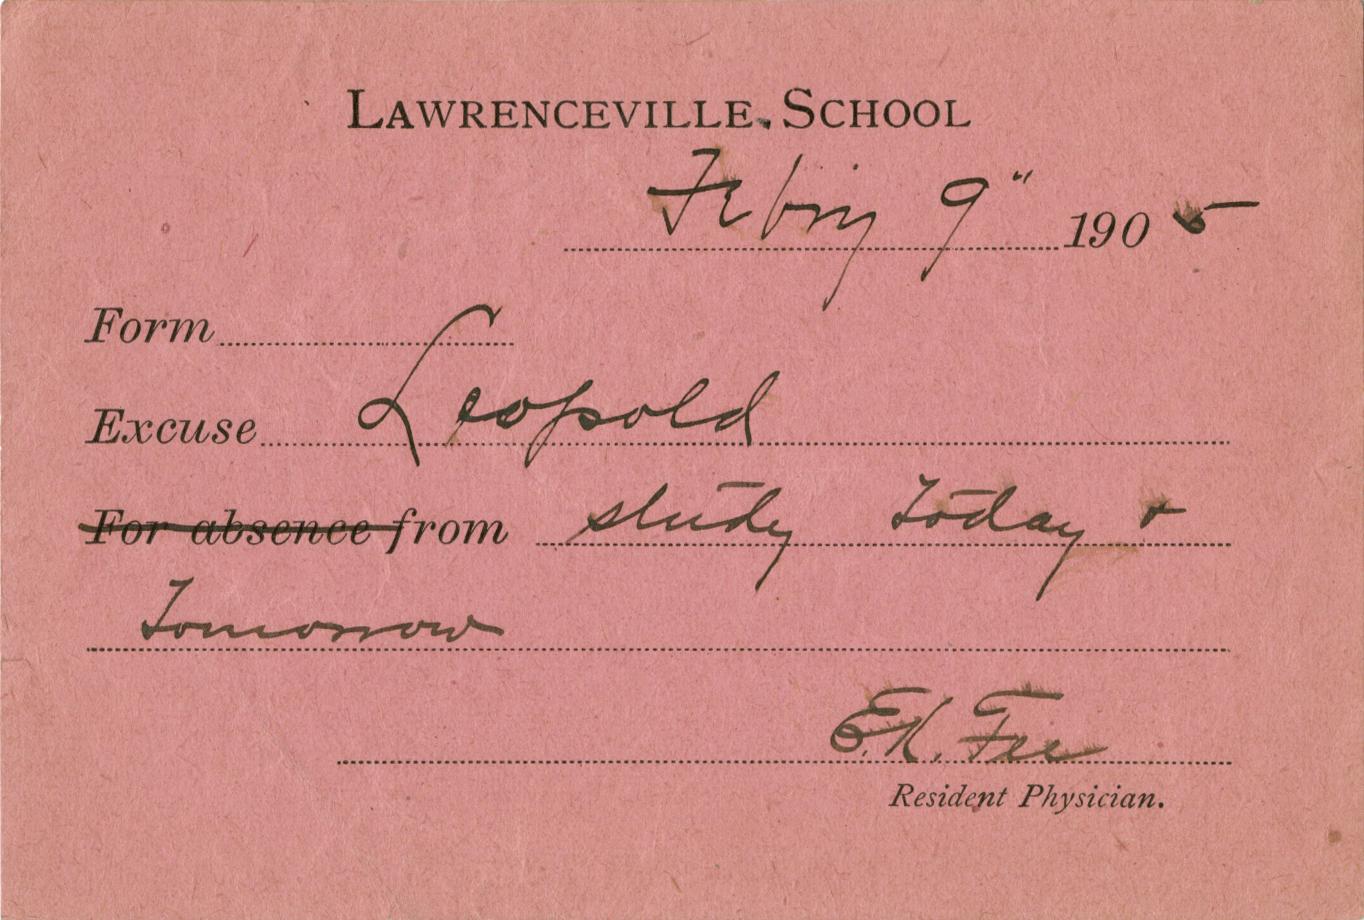 LAWRENCEVILLE SCHOOL
Febry 9" 1905
Form
Excuse Leopold
For absence from study today &
Tomorrow
E.K. Fee
Resident Physician.